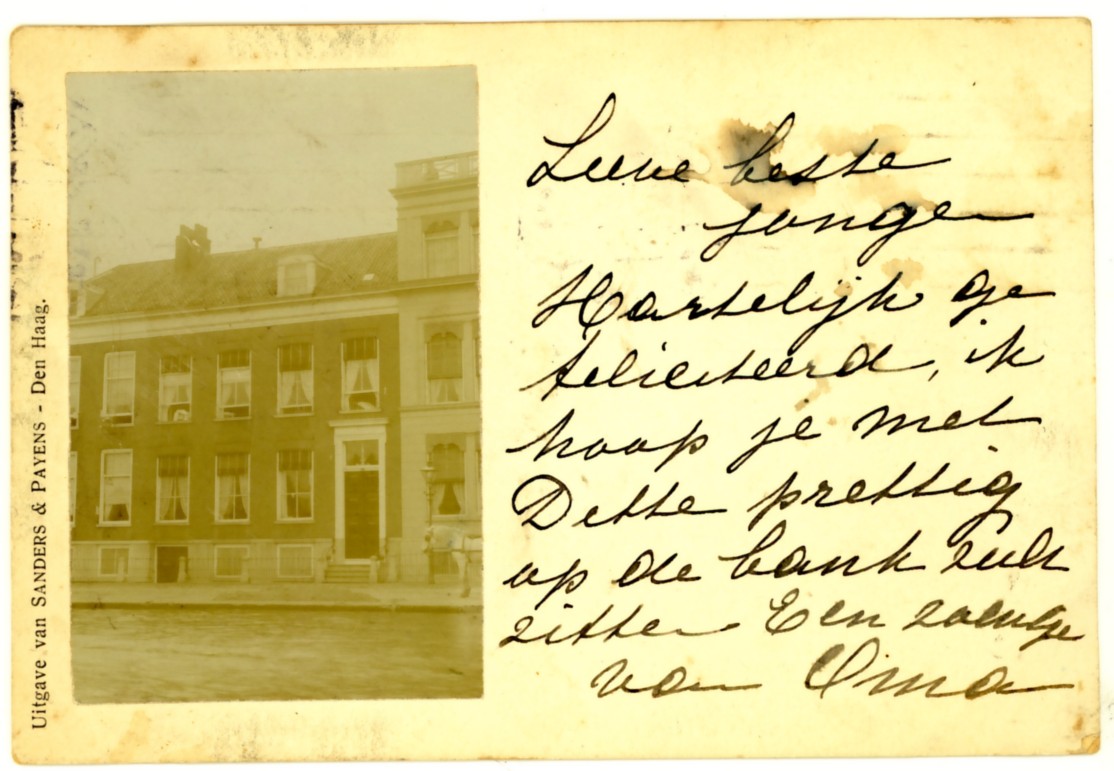 Uitgave van SANDERS & PAYENS - Den Haag.
Lieve beste
jongen
Hartelijk ge
feliciteerd, ik
hoop je met
Dette prettig
op de bank zult
zitten Een zoentje
van Oma